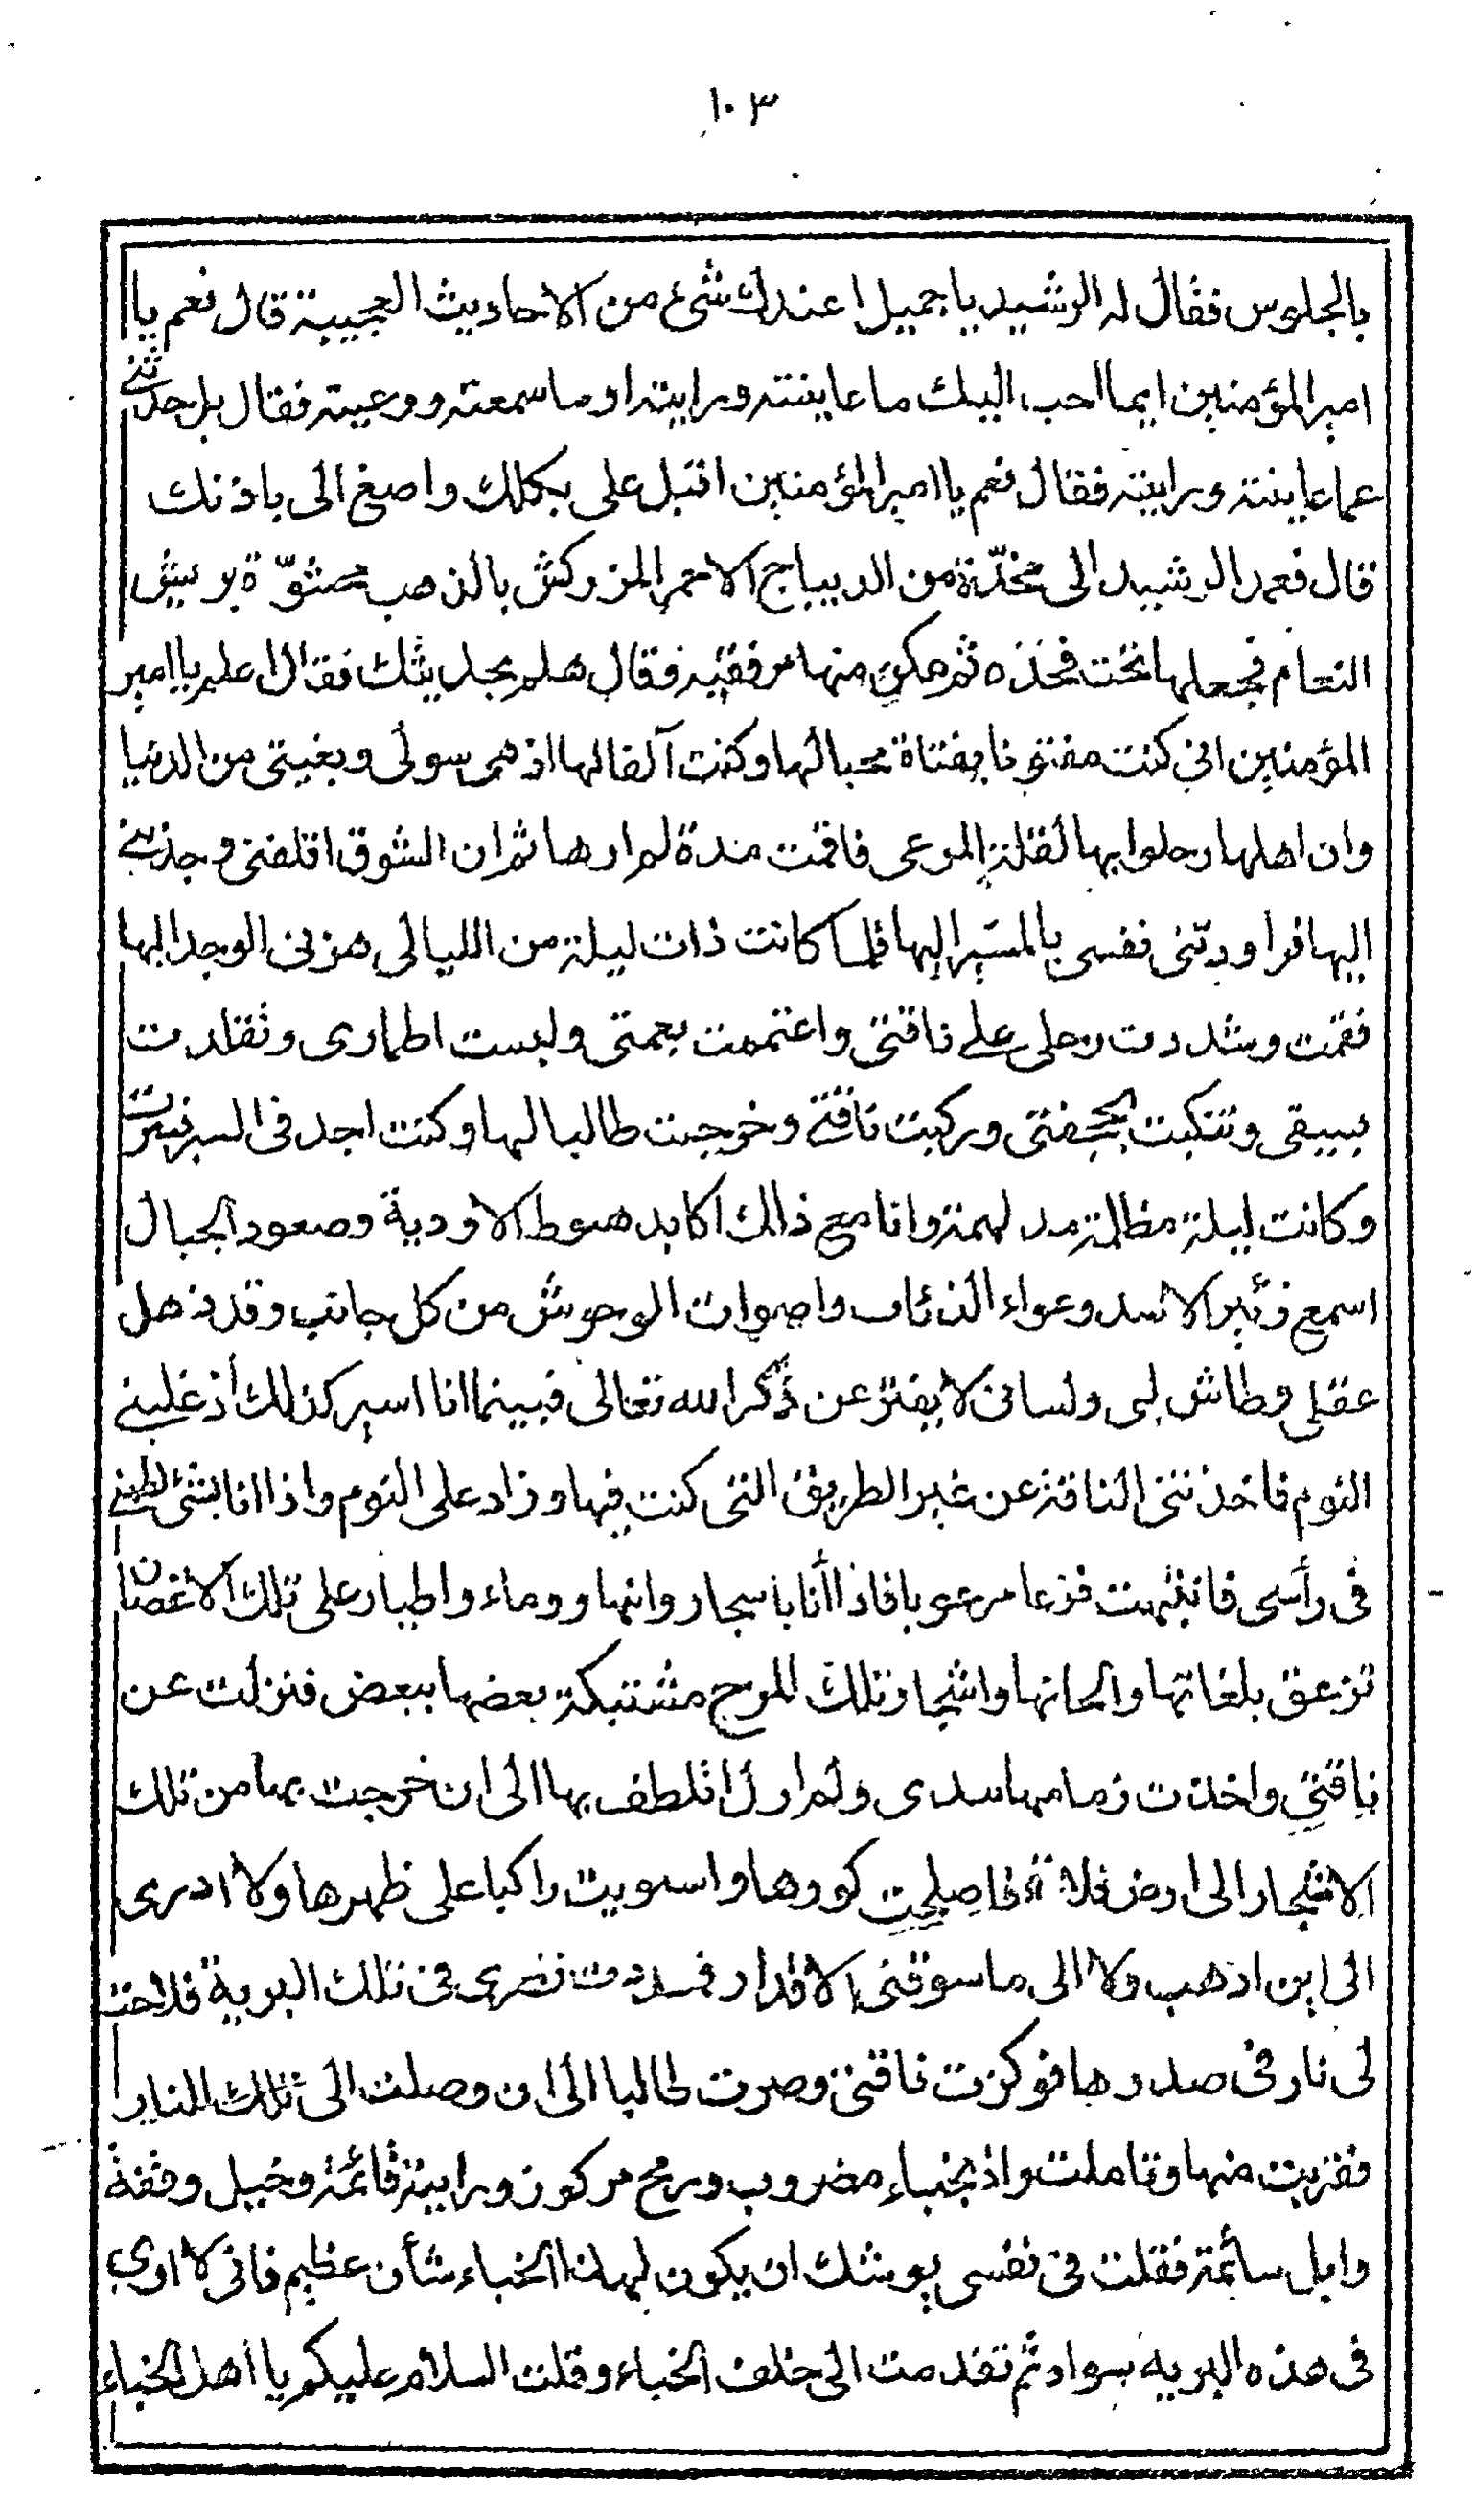 ١٠٣
بالجلوس فقال له الرشيد يا جميل اعندك شئ من الاحاديث العجيبة قال نعم يا
امير المؤمنين ايما احب اليك ما عاينته ورايته او ما سمعته ووعيته فقال بل حدثنى
عما عاينته ورايته فقال نعم يا امير المؤمنين اقبل على بكلك واصغ الى باذنك
قال فعمد الرشيد الى مخدّة من الديباج الاحمر المزركش بالذهب محشوّة بريش
النعام فجعلها تحت فخذه ثم مكن منها مرفقيه فقال هلم بحديثك فقال اعلم يا امير
المؤمنين انى كنت مفتونا بفتاة محبا لها وكنت آلفا لها اذ هى سولى وبغيتى من الدنيا
وان اهلها رحلوا بها لقلة المرعى فاقمت مدة لم ارها ثم ان الشوق اقلقنى وجذبنى
اليها فراودتنى نفسى بالمسير اليها فلما كانت ذات ليلة من الليالى هزنى الوجد اليها
فقمت وشددت رحلى على ناقتى واعتممت بعمتى ولبست اطمارى وتقلدت
بسيفى وتنكبت بحجفتى وركبت ناقتى وخرجت طالبا لها وكنت اجد فى السير فسرت
وكانت ليلة مظلمة مدلهمة وانا مع ذلك اكابد هبوط الاودية وصعود الجبال
اسمع زئير الاسد وعواء الذئاب واصوات الوحوش من كل جانب وقد ذهل
عقلى وطاش لبى ولسانى لا يفتر عن ذكر الله تعالى فبينما انا اسير كذلك اذ غلبنى
النوم فاخذتنى الناقة عن غير الطريق التى كنت فيها وزاد على النوم واذا انا بشئ لطمنى
فى رأسى فانتبهت فزعا مرعوبا فاذا أنا باسجار وانهاو وماء واطيار على تلك الاغصان
تزعق بلغاتها والحانها واشجار تلك المرج مشتبكة بعضها ببعض فنزلت عن
ناقتى واخذت زمامها بيدى ولم ازل اتلطف بها الى ان خرجت بها من تلك
الاشجار الى ارض فلاة فاصلحت كورها واستويت راكبا على ظهرها ولا ادرى
الى اين اذهب ولا الى ما سوقنى الاقدار فمددت نضرى فى تلك البرية فلاحت
لى نار فى صدرها فوكزت ناقتى وصرت طالبا الى ان وصلت الى تلك النار
فقربت منها وتاملت واذ بخباء مضروب ورمح مركوز ورايتة قائمة وخيل وقفة
وابل سائمة فقلت فى نفسى يوشك ان يكون لهذا الخباء شأن عظيم فانى لا ارى
فى هذه البريه بسواد ثم تقدمت الى خلف الخباء وقلت السلام عليكم يا اهل الخباء